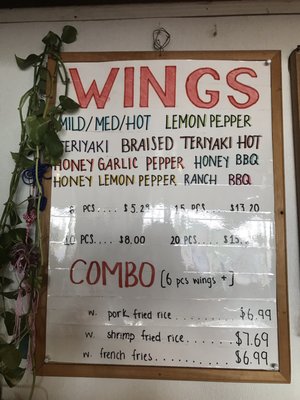 WINGS
MILD/MED/HOT LEMON PEPPER
TERIYAKI BRAISED TERIYAKI HOT
HONEY GARLIC PEPPER HONEY BBQ
HONEY LEMON PEPPER RANCH BBQ
6 PCS.... $5.29 15 PCS.... $13.20
10 PCS.... $8.00 20 PCS....
COMBO [6 pcs wings +]
w. pork fried rice............ $6.99
w. shrimp fried rice........ $7.69
w. french fries............ $6.99